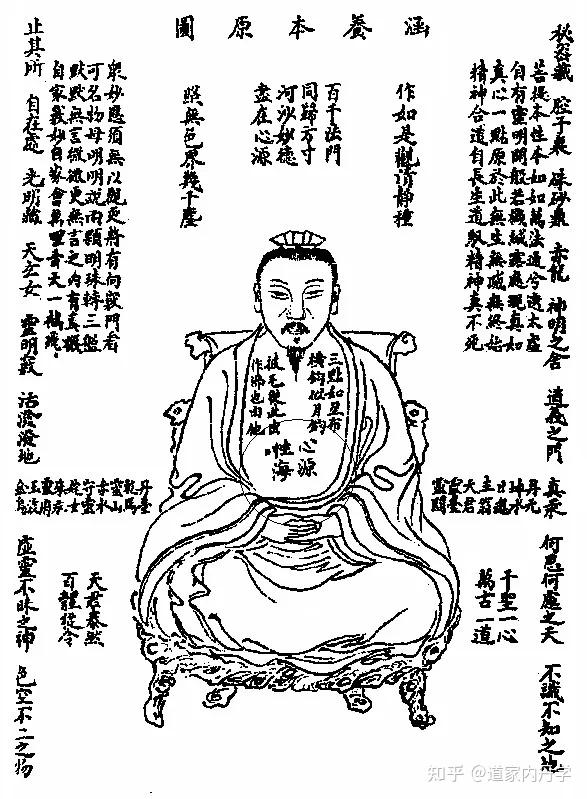 涵養本原圖
秘密藏 腔子裏 硃砂鼎 赤龍 神明之舍 道義之門 真汞 何思何慮之天 不識不知之地
菩提本性本如如萬法通兮透太虛
自有靈明開般若機緘露處現真如
真心一點原於此無生無滅無終始
精神合道自長生道馭精神真不死
作如是觀清静種
百千法門
同歸方寸
河沙妙德
盡在心源
照無色界幾千塵
眾妙應須無以觀更將有向竅門看
可名物母明明說兩顆明珠轉三盤
默默無言微更無言之內有真機
自家義妙自家會萬里青天一鶴飛
三點如星布
橫鈎似月
披毛從此出
作佛也由他
心源
性海
丹元
神水
日魂
主翁
天君
靈臺
靈關
丹臺
乾馬
靈山
赤水
守靈
姹女
珠
靈
玉液
金烏
千聖一心
萬古一道
天君泰然
百體從令
止其所 自在處 光明藏 天玄女 靈明竅 活潑潑地 虛靈不昧之神 色空不二之物
知乎 @道家内丹学